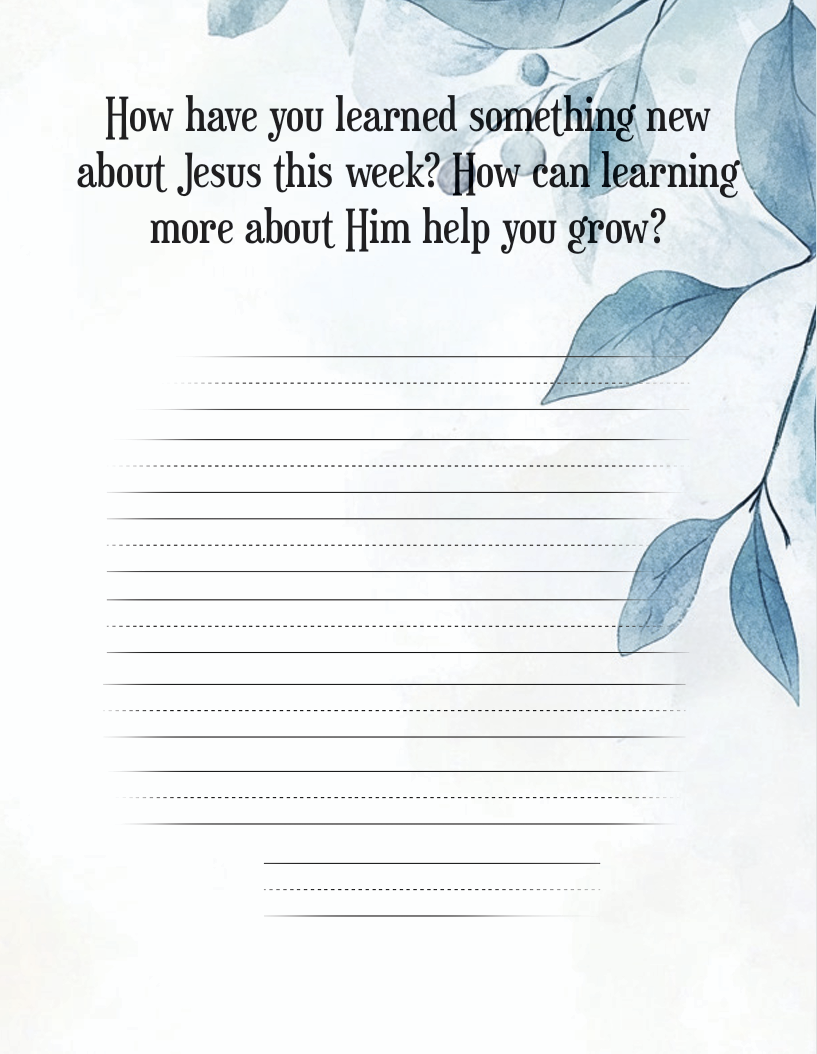 How have you learned something new
about Jesus this week? How can learning
more about Him help you grow?